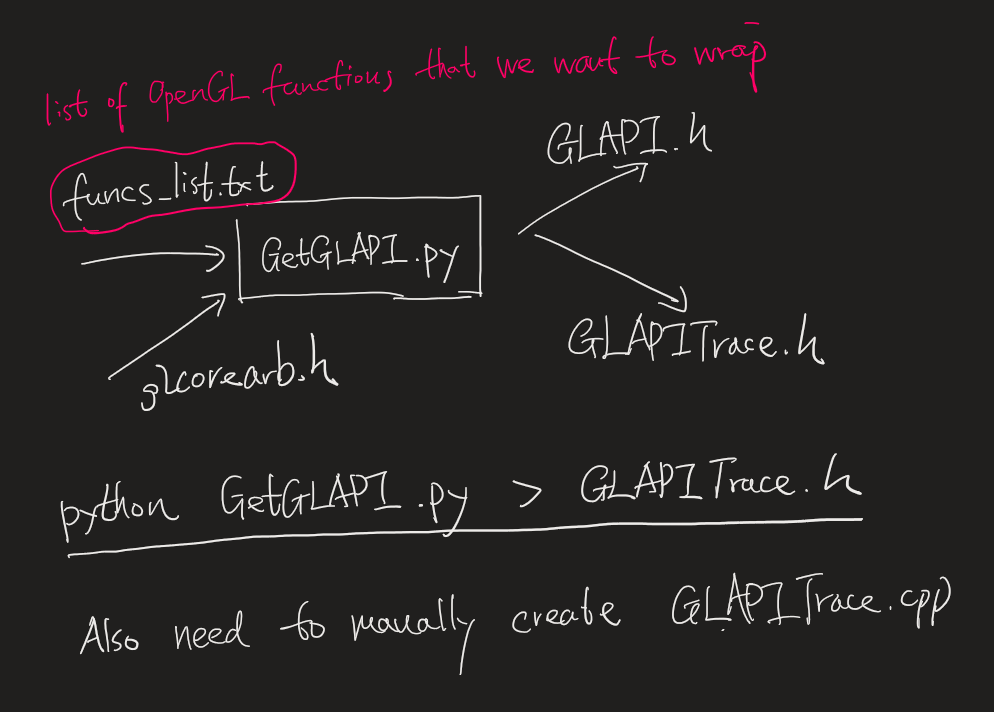 list of OpenGL functions that we want to wrap
funcs_list.txt
GetGLAPI.py
GLAPI.h
GLAPITrace.h
glcorearb.h
python GetGLAPI.py > GLAPITrace.h
Also need to manually create GLAPITrace.cpp